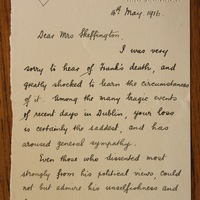 16th May. 1916.
Dear Mrs Sheffington,
I was very
sorry to hear of Frank's death, and
greatly shocked to learn the circumstances
of it. Among the many tragic events
of recent days in Dublin, your loss
is certainly the saddest, and has
aroused general sympathy.
Even those who dissented most
strongly from his political views, could
not but admire his unselfishness and